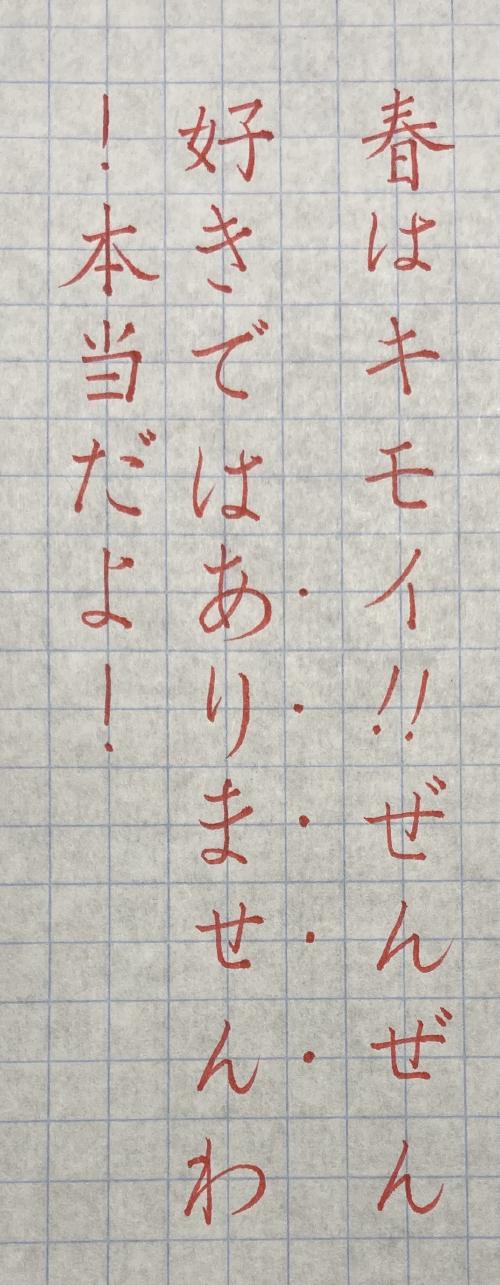 春はキモイ!!ぜんぜん
好きではありませんわ
!本当だよ!